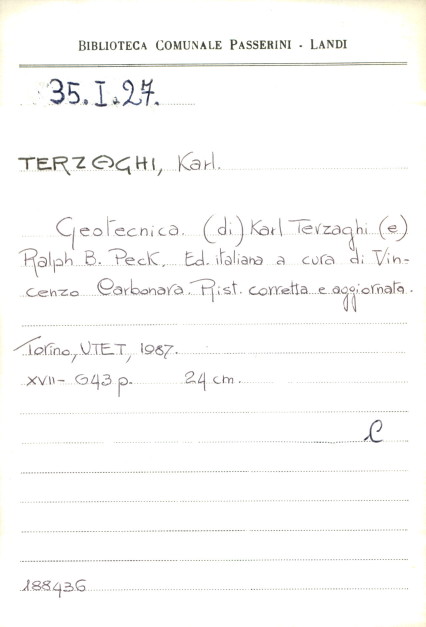 BIBLIOTECA COMUNALE PASSERINI - LANDI
35.I.27.
TERZAGHI, Karl.
Geotecnica. (di) Karl Terzaghi (e)
Ralph B. Peck. Ed. italiana a cura di Vin-
cenzo Carbonara. Rist. corretta e aggiornata.
Torino, UTET, 1987.
XVII- 643 p. 24 cm.
C
188436